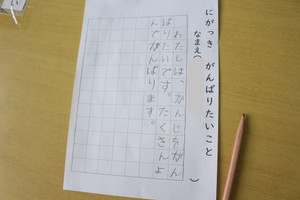 にがっき がんばりたいこと
なまえ（ ）
わたしは、かんじをがん
ばりたいです。たくさんよ
んでがんばります。